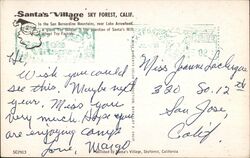 Santa's Village SKY FOREST, CALIF.
In the San Bernardino Mountains, near Lake Arrowhead.
Hi,
Wish you could
see this. Maybe next
year. Miss you
very much. Hope you
are enjoying camp.
Love, Margo
Miss Jeanne
330 So. 12th
San Jose,
Calif.
Published by Santa's Village, Skyforest, California